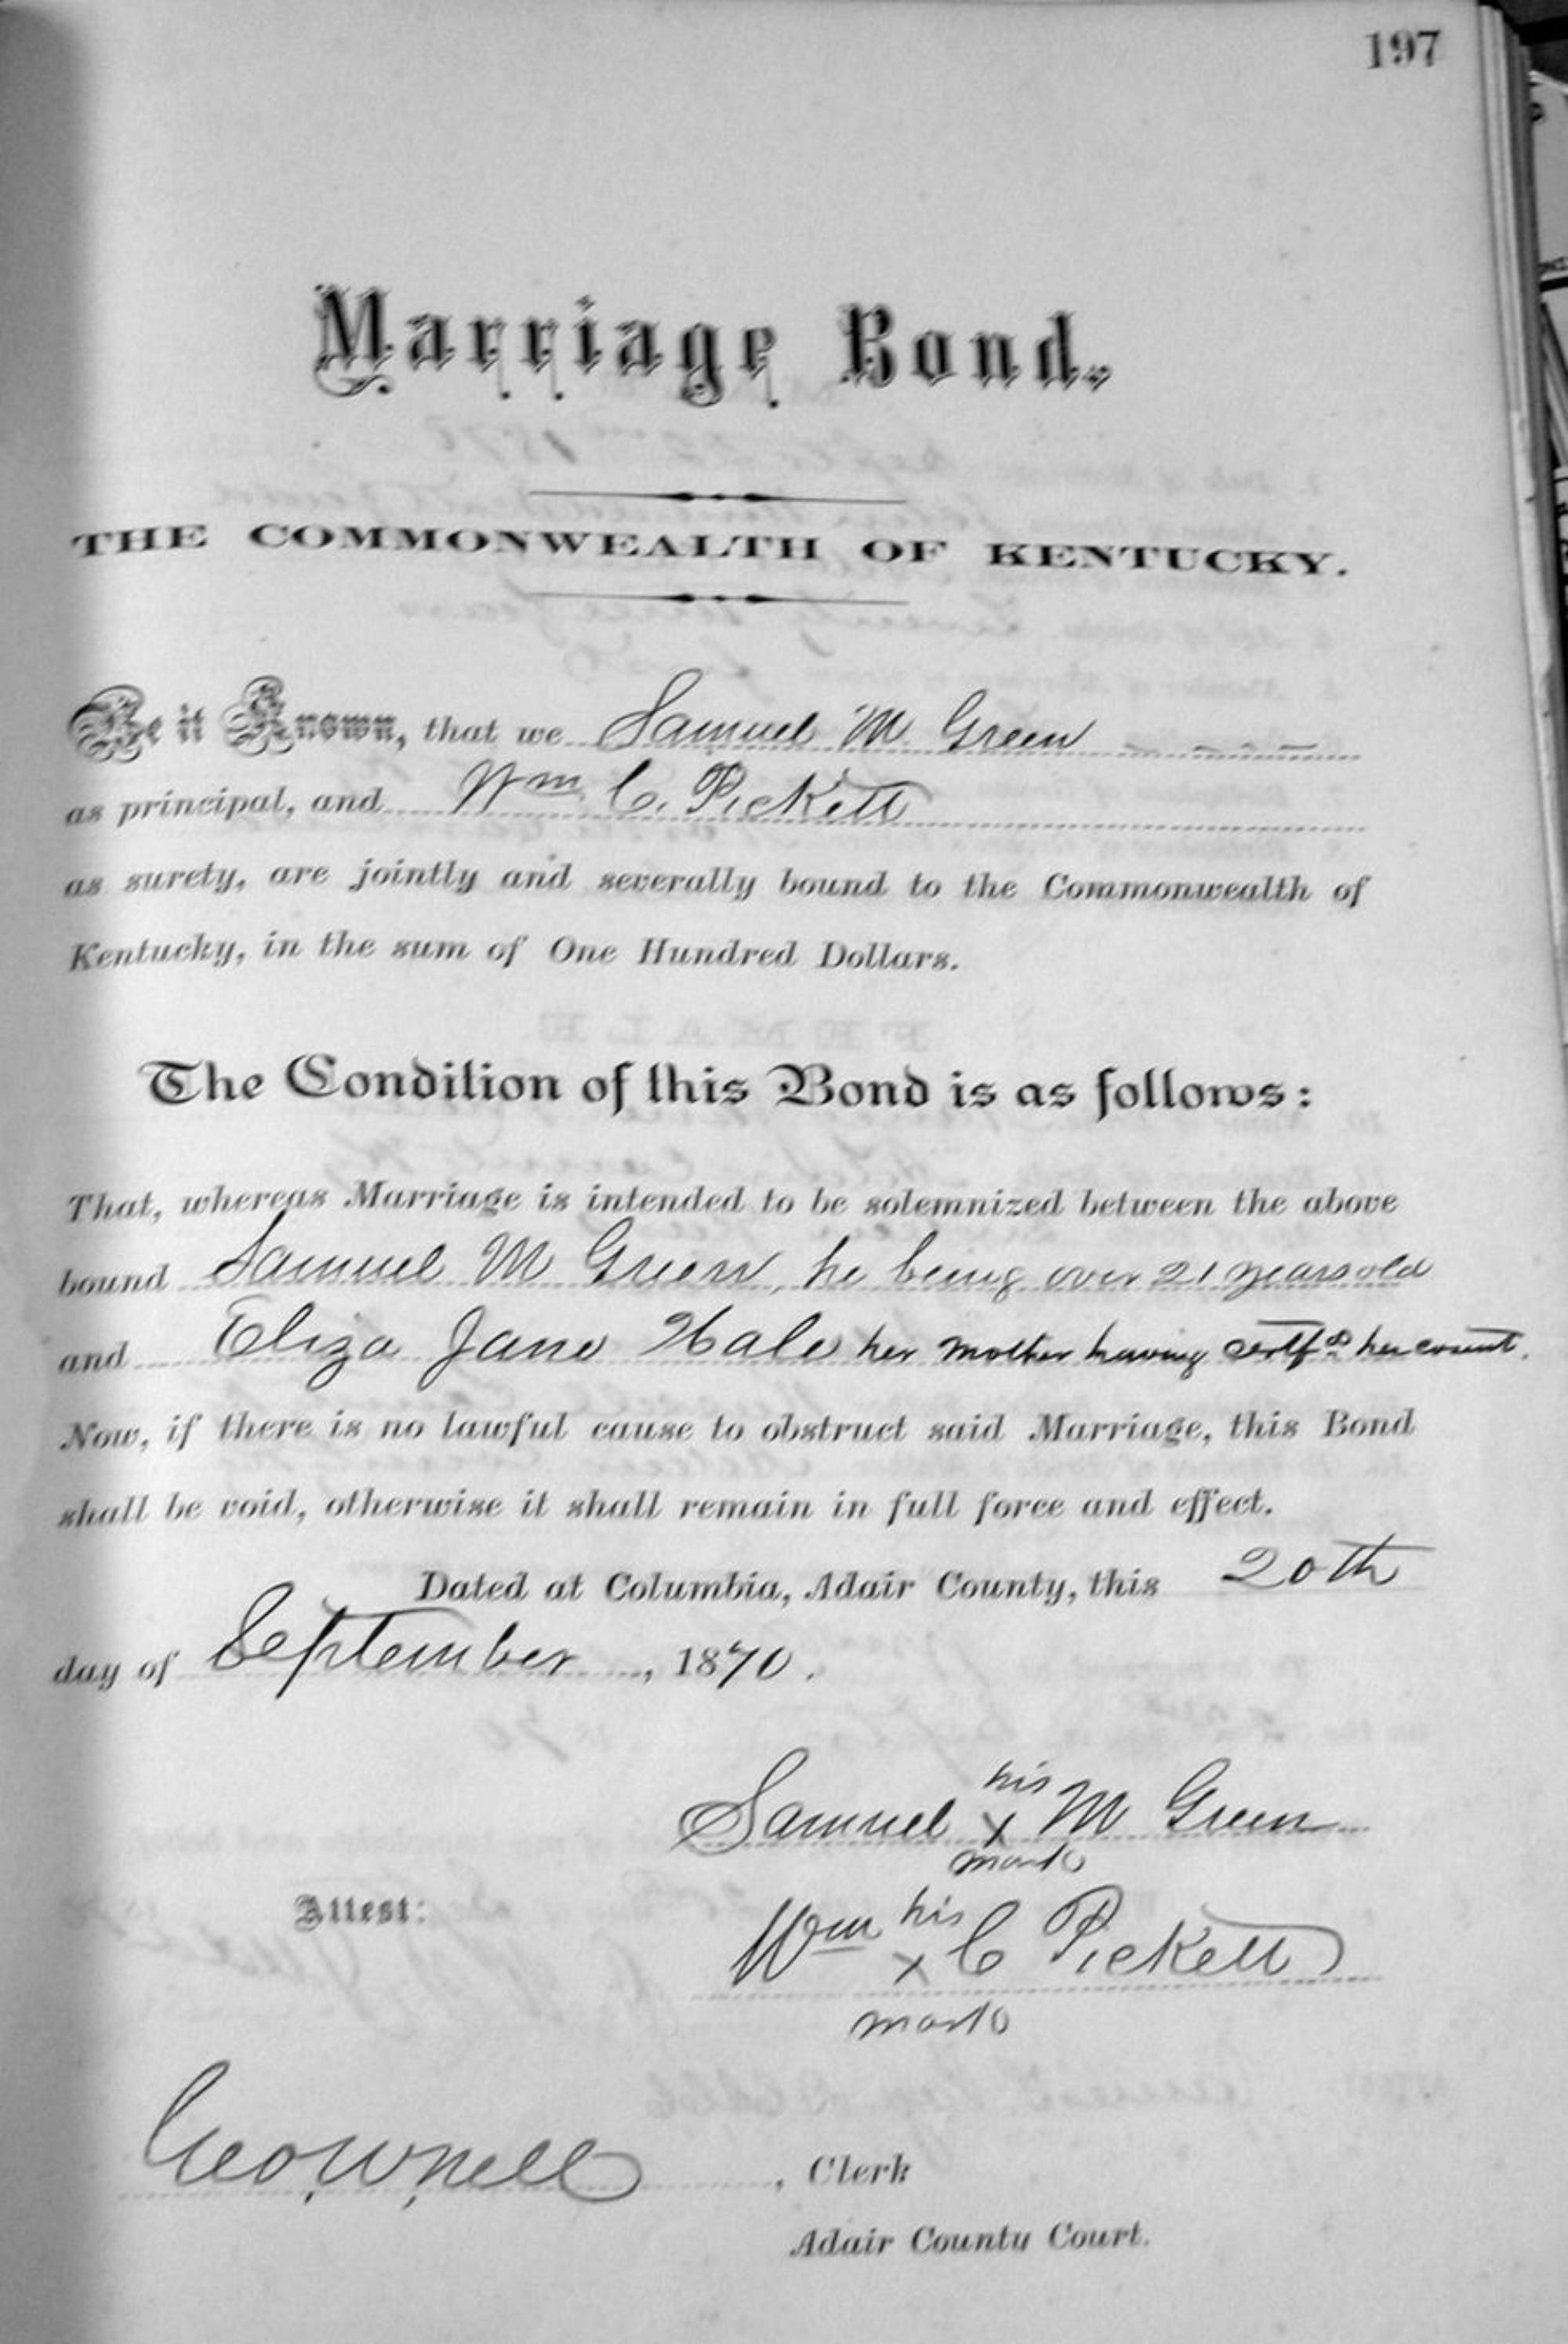 197
Marriage Bond.
THE COMMONWEALTH OF KENTUCKY.
Be it Known, that we Samuel M Green
as principal, and Wm C. Pickett
as surety, are jointly and severally bound to the Commonwealth of
Kentucky, in the sum of One Hundred Dollars.
The Condition of this Bond is as follows:
That, whereas Marriage is intended to be solemnized between the above
bound Samuel M Green, he being over 21 years old
and Eliza Jane Hale her mother having certfd her consent.
Now, if there is no lawful cause to obstruct said Marriage, this Bond
shall be void, otherwise it shall remain in full force and effect.
Dated at Columbia, Adair County, this 20th
day of September, 1870.
his
Samuel x M Green
mark
Attest:
his
Wm x C Pickett
mark
Geo W Nell, Clerk
Adair County Court.